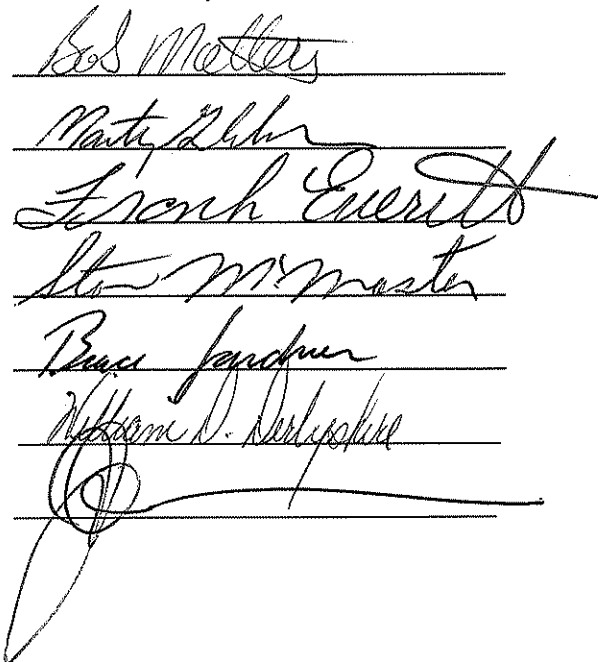 Bob Matters
Marty
Frank Everitt
Stan McMaster
Bruce Gardner
William D. Derbyshire